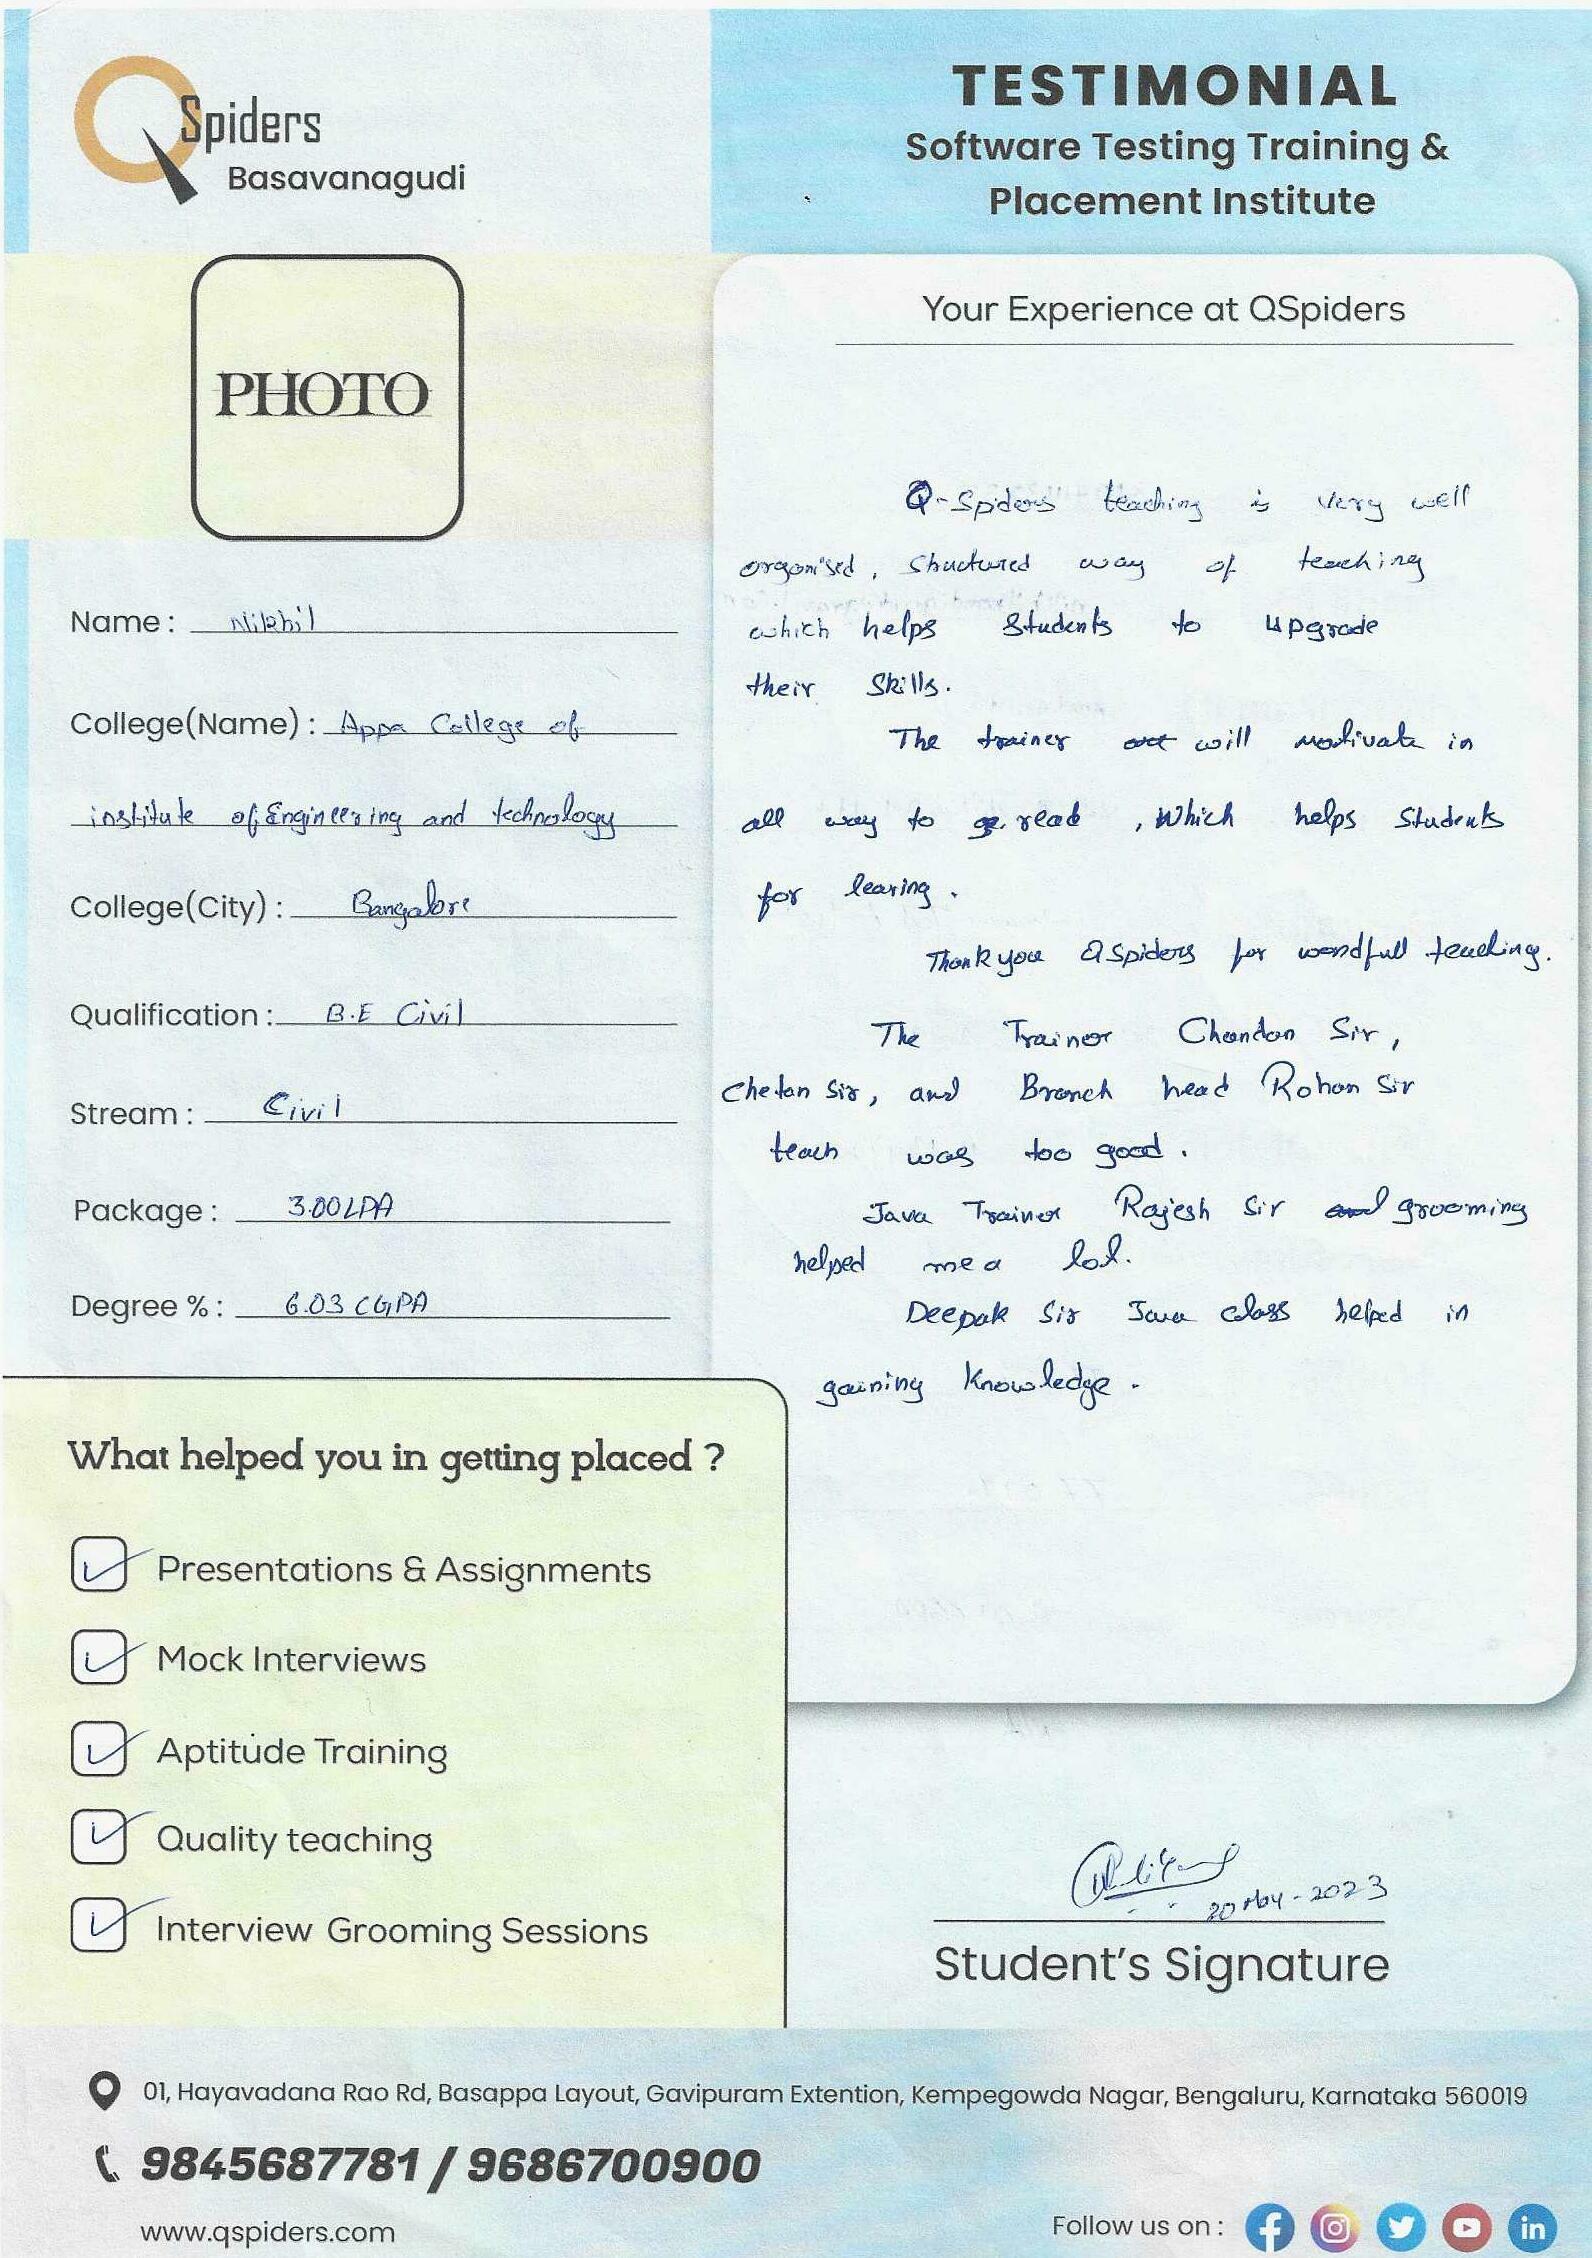 QSpiders
Basavanagudi
TESTIMONIAL
Software Testing Training &
Placement Institute
PHOTO
Name : Nikhil
College(Name) : Appa College of
institute of Engineering and technology
College(City) : Bangalore
Qualification : B.E Civil
Stream : Civil
Package : 3.00LPA
Degree % : 6.03 CGPA
Your Experience at QSpiders
Q-Spiders teaching is very well
organised, structured way of teaching
which helps Students to upgrade
their Skills.
The trainer will motivate in
all way to read , Which helps Students
for learing.
Thank you QSpiders for wondfull teaching.
The Trainor Chandan Sir,
Chetan Sir, and Branch head Rohan Sir
teach was too good.
Java Trainor Rajesh Sir and grooming
helped me a lot.
Deepak Sir Java class helped in
gaining Knowledge.
What helped you in getting placed ?
Presentations & Assignments
Mock Interviews
Aptitude Training
Quality teaching
Interview Grooming Sessions
20 May - 2023
Student's Signature
01, Hayavadana Rao Rd, Basappa Layout, Gavipuram Extention, Kempegowda Nagar, Bengaluru, Karnataka 560019
9845687781 / 9686700900
www.qspiders.com
Follow us on :